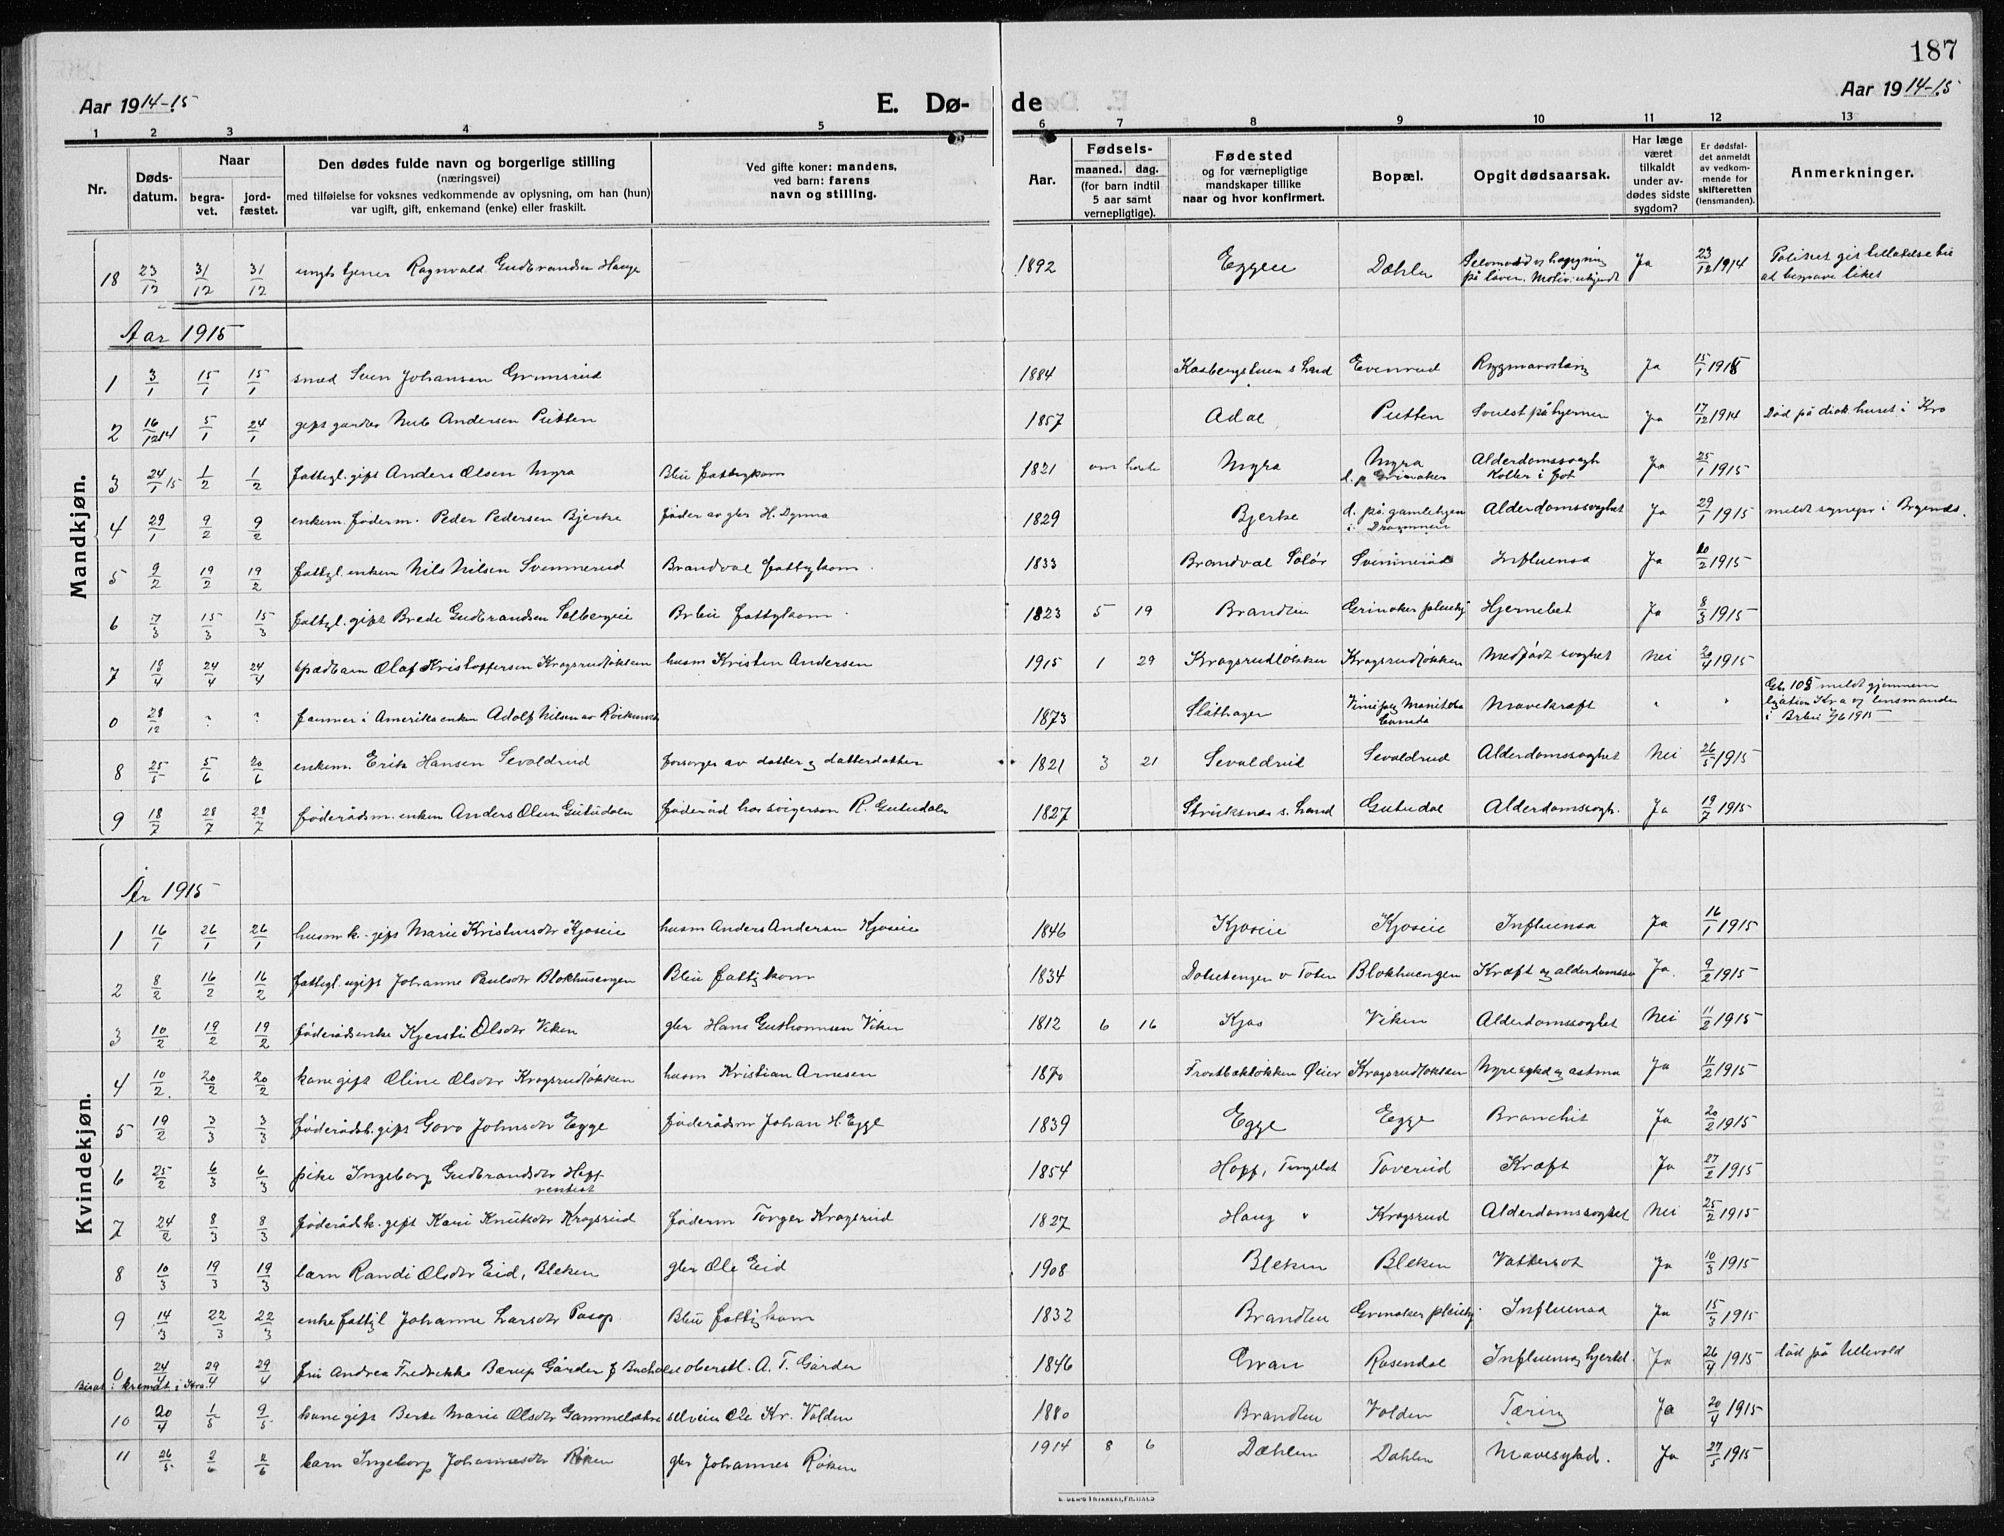 187
Aar 1914-15 E. Dø- de Aar 1914-15
1 2 3 4 5 6 7 8 9 10 11 12 13
Nr. Døds-datum. Naar begra-vet. jord-fæstet. Den dødes fulde navn og borgerlige stilling (næringsvei) med tilføielse for voksnes vedkommende av oplysning, om han (hun) var ugift, gift, enkemand (enke) eller fraskilt. Ved gifte koner: mandens, ved barn: farens navn og stilling. Aar. Fødsels- maaned. dag. (for barn indtil 5 aar samt vernepligtige). Fødested og for værnepligtige mandskaper tillike naar og hvor konfirmert. Bopæl. Opgit dødsaarsak. Har læge været tilkaldt under av-dødes sidste sygdom? Er dødsfal-det anmeldt av vedkom-mende for skifteretten (lensmanden). Anmerkninger.
Mandkjøn.
18 23/12 31/12 31/12 tjener Ragnvald Gudbrandsen Hauge 1892 Eggeie Dæhlen på låven. Motiv: ukjendt Ja 23/12 1914 Politiet gir tillatelse til at begrave liket
Aar 1915
1 3/1 15/1 15/1 smed Sven Johansen Grimsrud 1884 s. Land Evenrud Rygmarvstæring Ja 15/1 1915
2 16/12 14 5/1 24/1 gift garder Nub Andersen Putten 1857 Adal Putten Svulst på hjernen Ja 17/12 1914 Død på diak. huset i Kra
3 24/1 15 1/2 1/2 fattigl. gift Anders Olsen Myra Bleu fattigkom 1821 om høste Myra Myra d. p Grinaker Alderdomssvagh Ja 25/1 1915
4 29/1 9/2 9/2 enkem. føderm. Peder Pedersen Bjerke føder av gbr H. Dynna 1829 Bjerke d. på gamlehjem i Drammen Alderdomssvaghet Ja 29/1 1915
5 9/2 19/2 19/2 fattigl. enkem Nils Nilsen Svemmerud Brandval fattigkom. 1833 Brandval Solør Svemmerud Influensa Ja 20/2 1915
6 7/3 15/3 15/3 fattigl. gift Brede Gudbrandsen Solbergeie Brbu fattigkom. 1823 5 19 Brandbu Grinaker pleiehj Hjernebet Ja 8/3 1915
7 18/4 24/4 24/4 spædbarn Olaf Kristoffersen Kragsrudløkken husm Kristen Andersen 1915 1 29 Kragsrudløkken Kragsrudløkken Medfødt svaghet Nei 20/4 1915
0 28/12 ? ? farmer i Amerika enkem Adolf Nilsen av Røikenvik 1873 Slåthagen Vinnipeg Manitoba Canada Mavekræft " " Gb. 108 meldt gjennem legation Kra og lensmanden i Brbu 1/6 1915
8 25/5 5/6 20/6 enkem. Erik Hansen Sevaldrud forsørges av datter og datterdatter 1821 3 21 Sevaldrud Sevaldrud Alderdomssvaghet Nei 26/5 1915
9 18/7 28/7 28/7 føderådsm. enkem Anders Olsen Gutudalen føderåd hos svigersøn R. Gutudalen 1827 Struksnes s. Land Gutudal Alderdomssvagh. Ja 19/7 1915
Kvindekjøn.
År 1915
1 16/1 26/1 26/1 husm k. gift Marie Kristensdtr Kjoseie husm Anders Andersen Kjoseie 1846 Kjoseie Kjoseie Influensa Ja 16/1 1915
2 8/2 16/2 16/2 fattigl. ugift Johanne Paulsdtr Blokhusengen Bleu fattigkom 1834 v Toten Blokhusengen Kræft og alderdomssv Ja. 9/2 1915
3 10/2 19/2 19/2 føderådsenke Kjersti Olsdtr Viken gbr Hans Guthormsen Viken 1812 6 16 Kjos Viken Alderdomssvaghet Nei 11/2 1915
4 10/2. 20/2 20/2 kone gift Oline Olsdtr Kragsrudløkken husm Kristian Arnesen 1870 Frostbækløkken Øier Kragsrudløkken Nyresykd og astma Ja 11/2 1915
5 19/2 3/3 3/3 føderådsk. gift Goro Johnsdtr Egge føderådsm Johan H. Egge 1839 Egge Egge Bronchit Ja 20/2 1915
6 25/2 6/3 6/3 pike Ingeborg Gudbrandsdtr Hopf rentist 1854 Hopf, Tingelst Toverud Kræft Ja 27/2 1915
7 24/2 8/3 8/3 føderådsk. gift Kari Knutsdtr Kragsrud føderm Torger Kragsrud 1827 Haug " Kragsrud Alderdomssvaghet Nei 25/2 1915
8 10/3 19/3 19/3 barn Randi Olsdtr Eid, Bleken gbr Ole Eid 1908 Bleken Bleken Vattersot Ja 10/3 1915
9 14/3 22/3 22/3 enke fattigl Johanne Larsdtr Pasop Bleu fattigkom 1832 Brandbu Grinaker pleiehj Influensa Ja 15/3 1915
0 24/4 29/4 29/4 fru Andrea Fredrikke Bærup Gårder f Buchole oberstl. A. T. Gårder 1846 Gran Rosendal Influensa, hjertel. Ja 26/4 1915 død på Ullevold
Bisat i kremat. i Kra.
10 20/4 1/5 9/5 kone gift Berte Marie Olsdtr Gammelsætre selveier Ole Kr. Volden 1880 Brandbu Volden Tæring Ja 20/4 1915
11 26/5. 2/6 2/6 barn Ingeborg Johannesdtr Røken gbr Johannes Røken 1914 8 6 Dæhlen Dæhlen Mavesykd. Ja 27/5 1915